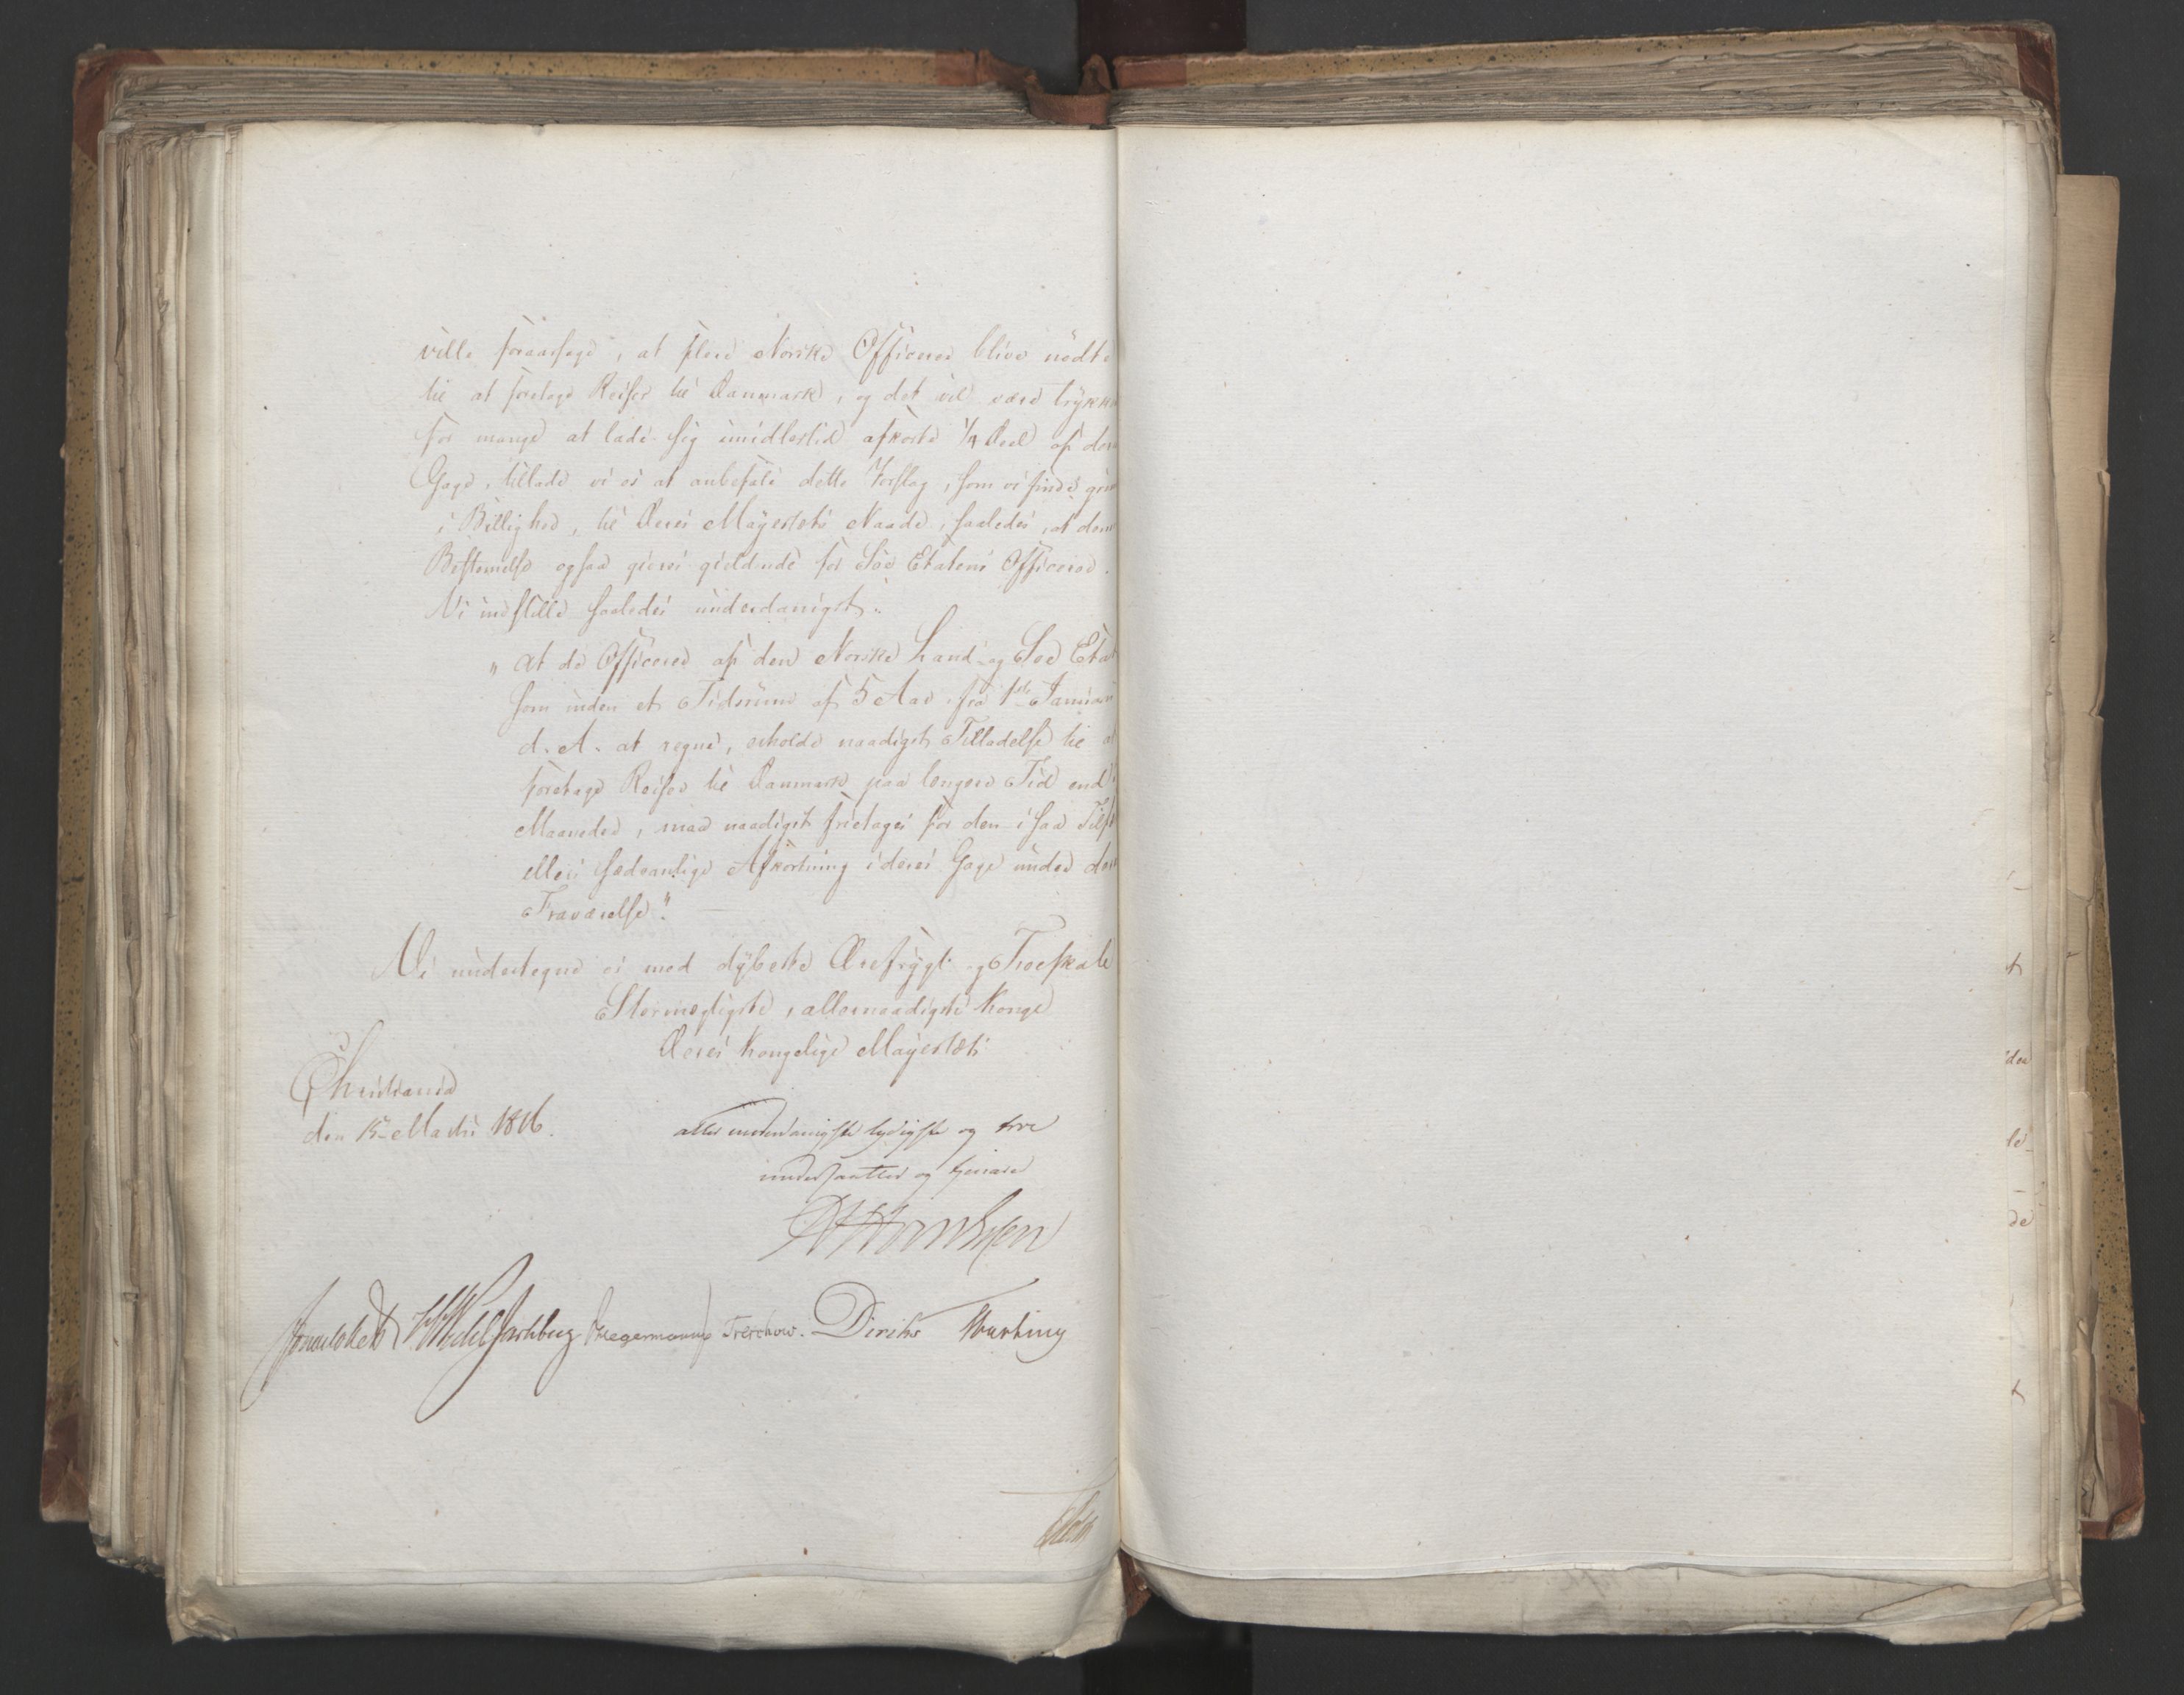 ville foraarsage, at flere Norske Officerer blive nödte
til at foretage Reiser til Danmark, og det vil være trykke
for mange at lade sig imidlertid afkorte 1/4 Deel af der
Gage, tillade vi os at anbefale dette Forslag, som vi finde
i Billighed, til Deres Mayestets Naade, saaledes, at denne
Bestemelse ogsaa gieres gieldende for Söe Etatens Officerer.
Vi indstille saaledes underdanigst:
"at de Officerer af den Norske Land- og Söe Etat
som inden et Tidsrum af 5 Aar, fra 1ste Januari
d. A. at regne, erholde naadigst Tilladelse til at
foretage Reiser til Danmark paa længere Tid end
Maaneder, maa naadigst fritages for den i saa Tilf
ellers sædvanlige Afkortning i deres Gage under der
Fraværelse".
Vi undertegne os med dybeste Ærefrygt og Troeskab
Stormægtigste, allernaadigste Konge
Deres Kongelige Mayestæts
Christiania
den 15 Martii 1816.
aller underdanigste lydigste og troe
undersaatter og tjenere
Sommerhielm Wedel Jarlsberg Hegermann Treschow. Diriks Motzfeldt